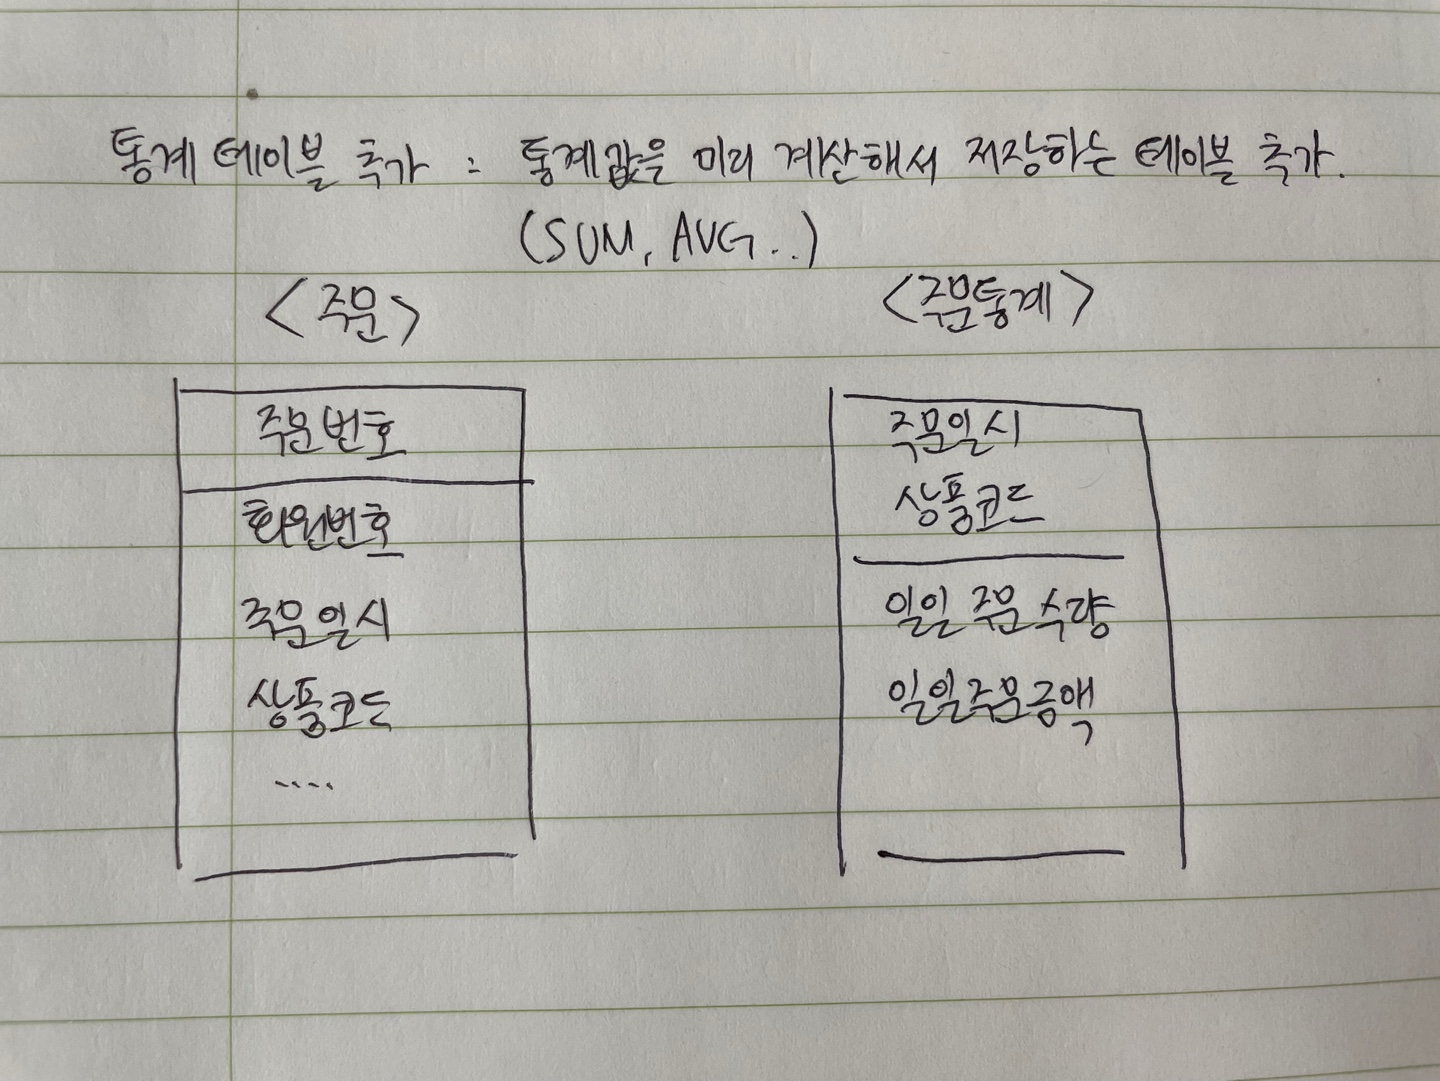 통계 테이블 추가 : 통계값을 미리 계산해서 저장하는 테이블 추가.
(SUM, AVG..)
<주문>
주문번호
회원번호
주문일시
상품코드
....
<주문통계>
주문일시
상품코드
일일 주문 수량
일일주문금액